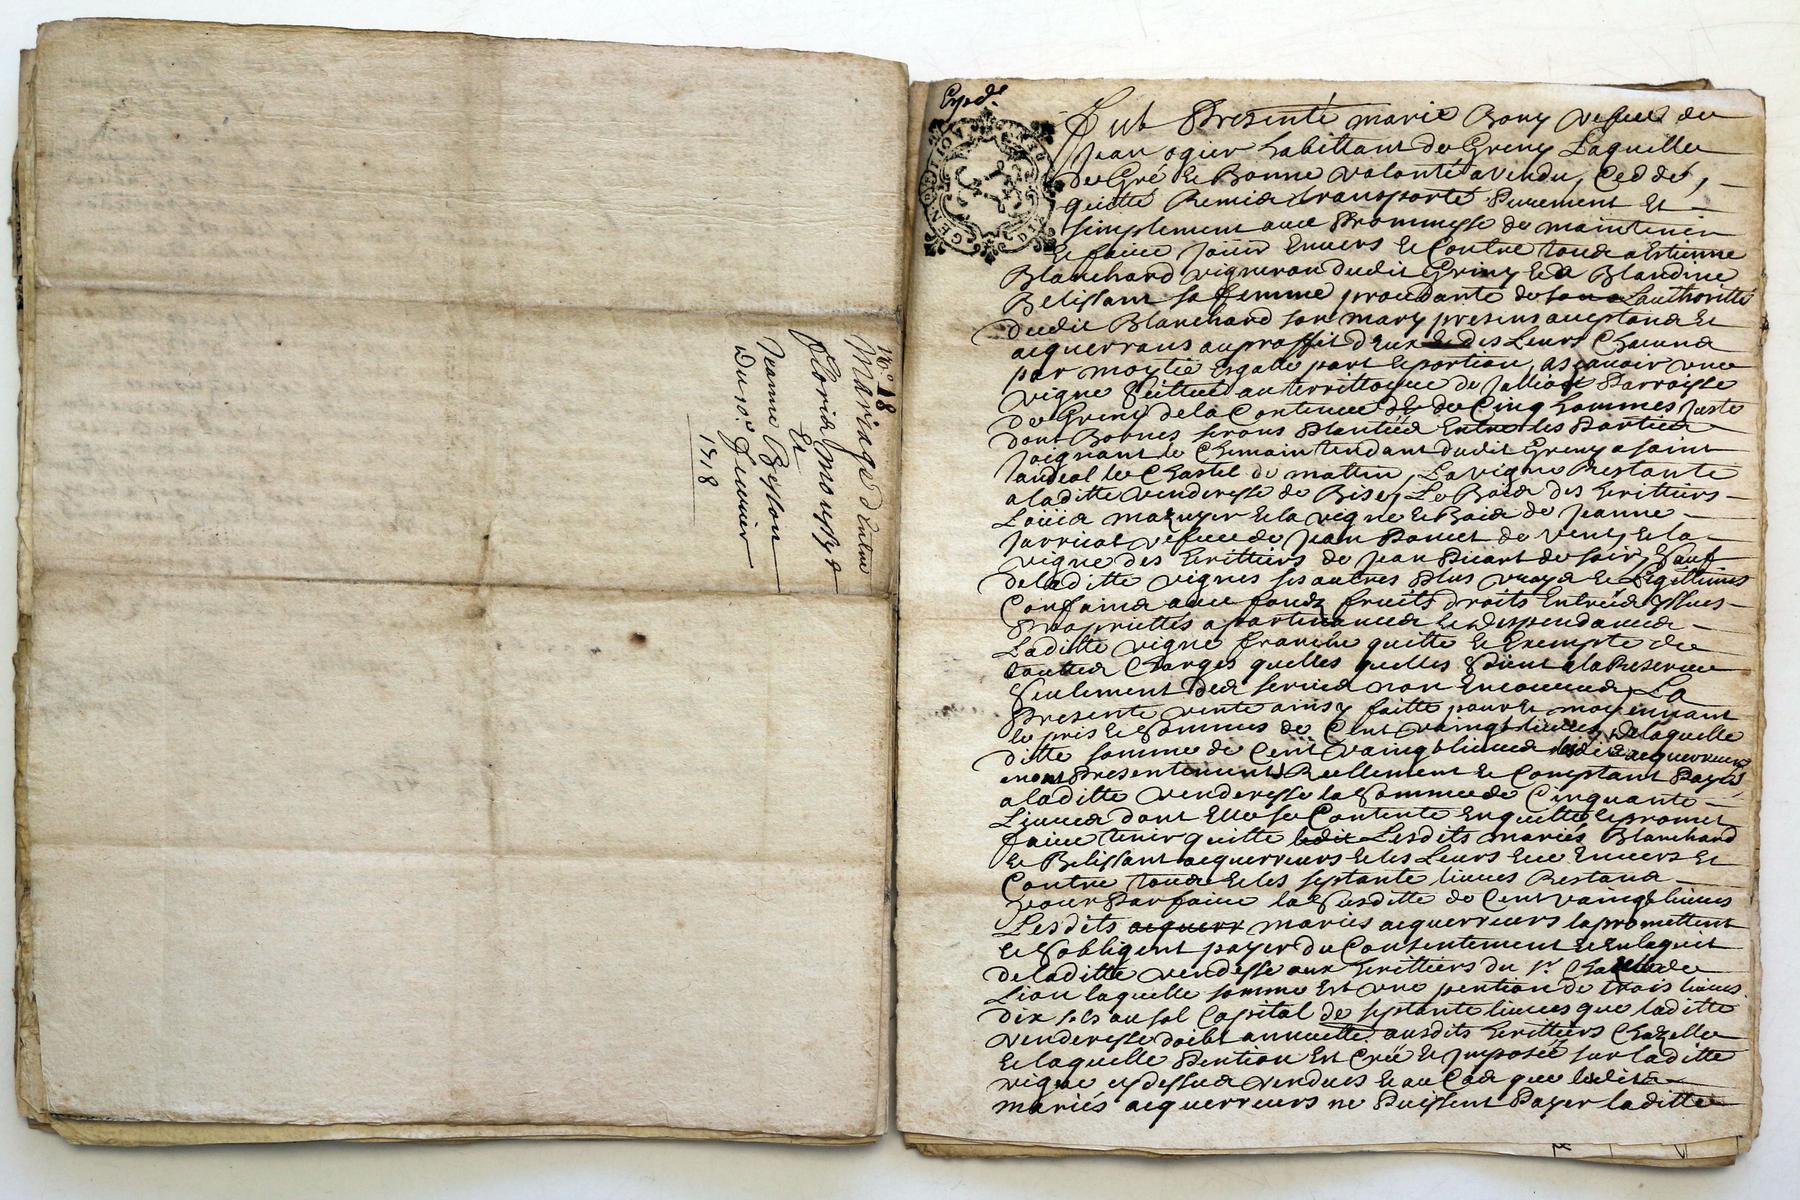 n° 18
Mariage d'entre
Floris mousst
Et
Jeanne Besson
Du 10e Jenvier
1718
Exped.
GEN DE LION
Fut Presente marie Bony vefue de
Jean ogier habittant de Greny Laquelle
de Gré et Bonne volonté a vendu, Ceddé,
quitté Remis transporté Purement Et
simplement auec Prommesse de maintenir
et faire Jouir Enuers et Contre tous a Estienne
Blanchard vigneron dudit Griny et a Blandine
Belissant sa femme procedante de sous Lauthoritté
dudit Blanchard son mary presens aceptans et
acquerrans au proffit d'Eux et des Leurs Chacuns
par moytié Esgalle part et portion, Ascauoir une
vigne scittuée au territtoyre de Jallion Parroisse
de Greny de la Contenue de de Cinq hommes Juste
dont Bornes serons Plantées Entre les Parties
Joignant le Chemain tendant dudit Greny a saint
landeal le Chastel de matin, La vigne Restante
a laditte venderesse de Bise, Le Bois des heritters
Loüis mazuyer et la vigne et Bois de Jeanne
Jarricot vefue de Jean Poncet de vent, et la
vigne des heritiers de Jean Picart de soir, Sauf
de laditte vignes ses autres Plus vrays et Legittimes
Confains auec fonds fruits droits Entrées yssues
Propriettés apartenances et despendances
Laditte vigne franche quitte et Exempte de
touttes Charges quelles quelles Soient a la Reserue
Seulement des seruis non Encourus, La
Presente vente ainsy faitte pour et moyennant
le pris et Somme de Cent vaingt liures de laquelle
ditte somme de Cent vaingt liures lesdits acquerreurs
en ont Presentement Reellement et Comptant Payés
a laditte venderesse la Somme de Cinquante
Liures dont Elle se Contente En quitte et promet
faire tenir quitte ledit Lesdits mariés Blanchard
et Belissant acquerreurs et les Leurs Enuers et
Contre tous et les septante liures Restans
pour Parfaire la Susditte de Cent vaingt liures
Lesdits acquerr mariés acquerreurs la promettent
et Sobligent payer du Consentement
de laditte vendesse aux heritiers du Sr. Chazelle de
Lion laquelle somme Est une pention de trois liures
dix sols au sol Capital de septante liures que laditte
venderesse doibt annuelle ausdits heritiers Chazelle
et laquelle Pention Est Crée et Jmposée sur laditte
vigne cy dessus vendues et au Cas que lesdits
mariés acquerreurs ne Puissent Payer laditte